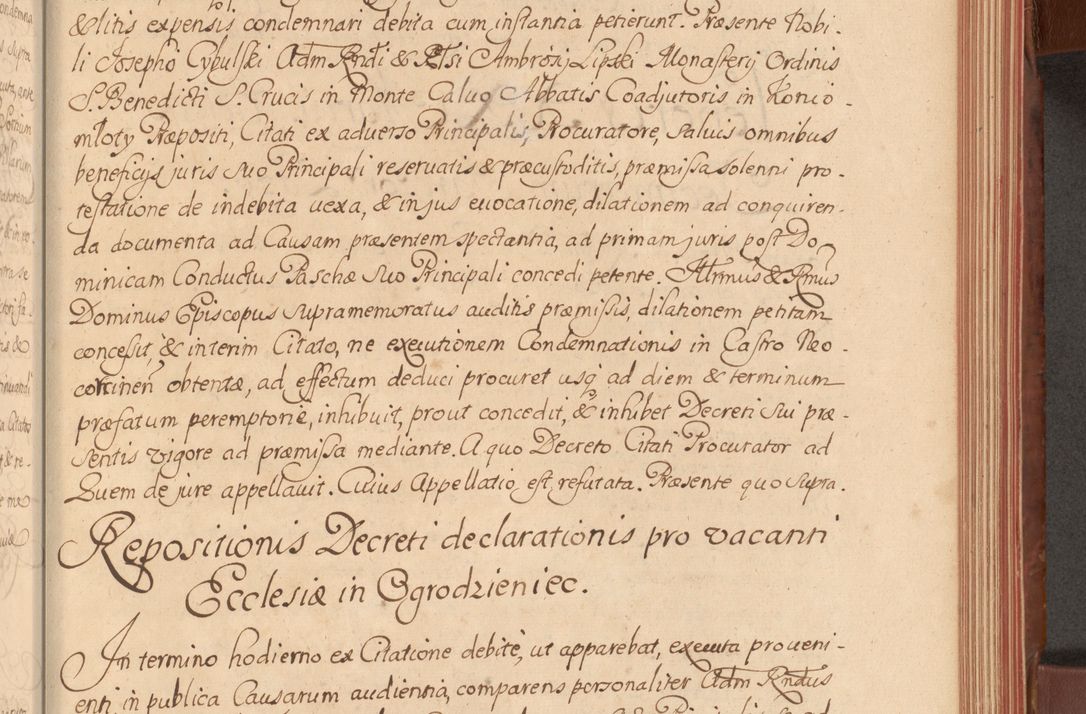 & litis expensis condemnari debita cum instantia petierunt. Præsente Nobi-
li Josepho Cybulski Adm Rndi & Rlsi Ambrosij Lipski Monasterij Ordinis
S. Benedicti S. Crucis in Monte Caluo Abbatis Coadjutoris in Konio-
młoty Præpositi, Citati ex adverso Principalis, Procuratore, saluis omnibus
beneficijs juris suo Principali reservatis & præcustoditis, præmissa solenni pro-
testatione de indebita uexa, & in jus euocatione, dilationem ad conquiren-
da documenta ad Causam præsentem spectantia, ad primam juris post Do
minicam Conductus Paschæ suo Principali concedi petente. Illrmus & Rmus
Dominus Episcopus supramemoratus auditis præmissis, dilationem petitam
concessit, & interim Citato, ne executionem Condemnationis in Castro Neo-
corcinen̄ obtentæ, ad effectum deduci procuret usq ad diem & terminum
præfatum peremptorie, inhibuit, prout concedit, & inhibet Decreti sui præ-
sentis vigore ad præmissa mediante. A quo Decreto Citati Procurator ad
Quem de jure appellauit. Cuius Appellatio est refutata. Præsente quo supra.
Repositionis Decreti declarationis pro vacanti
Ecclesiæ in Ogrodzieniec.
In termino hodierno ex Citatione debite, ut apparebat, executa proueni-
enti in publica Causarum audientia, comparens personaliter Adm Rndus